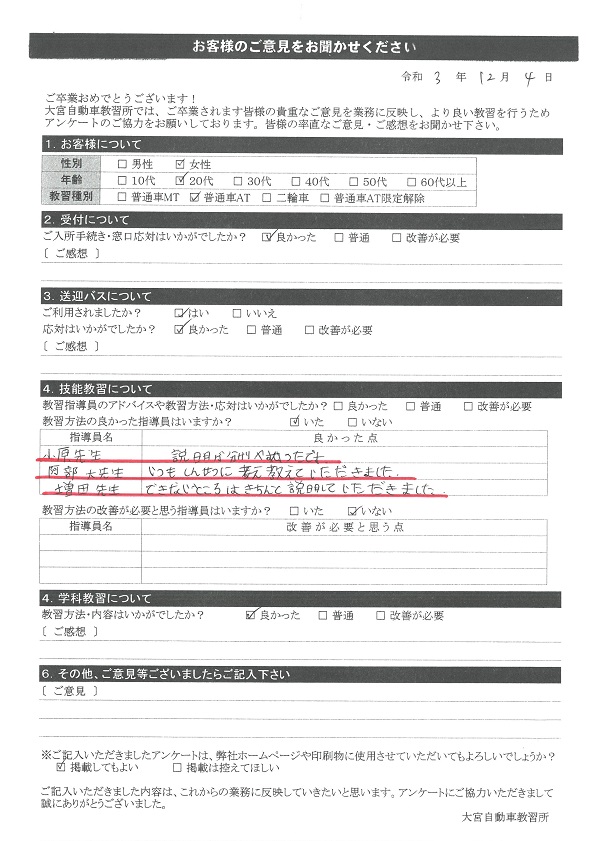 お客様のご意見をお聞かせください
令和 3 年 12 月 4 日
ご卒業おめでとうございます！
大宮自動車教習所では、ご卒業されます皆様の貴重なご意見を業務に反映し、より良い教習を行うため
アンケートのご協力をお願いしております。皆様の率直なご意見・ご感想をお聞かせ下さい。
1. お客様について
性別 □ 男性 ☑ 女性
年齢 □ 10代 ☑ 20代 □ 30代 □ 40代 □ 50代 □ 60代以上
教習種別 □ 普通車MT ☑ 普通車AT □ 二輪車 □ 普通車AT限定解除
2. 受付について
ご入所手続き・窓口応対はいかがでしたか？ ☑ 良かった □ 普通 □ 改善が必要
〔 ご感想 〕
3. 送迎バスについて
ご利用されましたか？ ☑ はい □ いいえ
応対はいかがでしたか？ ☑ 良かった □ 普通 □ 改善が必要
〔 ご感想 〕
4. 技能教習について
教習指導員のアドバイスや教習方法・応対はいかがでしたか？ □ 良かった □ 普通 □ 改善が必要
教習方法の良かった指導員はいますか？ ☑ いた □ いない
指導員名 良かった点
小原先生 説明が分かりやすかったです
阿部 先生 いつもしんせつに 教えていただきました.
増田 先生 できないところはきちんと説明していただきました.
教習方法の改善が必要と思う指導員はいますか？ □ いた ☑ いない
指導員名 改善が必要と思う点
4. 学科教習について
教習方法・内容はいかがでしたか？ ☑ 良かった □ 普通 □ 改善が必要
〔 ご感想 〕
6. その他、ご意見等ございましたらご記入下さい
〔 ご意見 〕
※ご記入いただきましたアンケートは、弊社ホームページや印刷物に使用させていただいてもよろしいでしょうか？
☑ 掲載してもよい □ 掲載は控えてほしい
ご記入いただきました内容は、これからの業務に反映していきたいと思います。アンケートにご協力いただきまして
誠にありがとうございました。
大宮自動車教習所